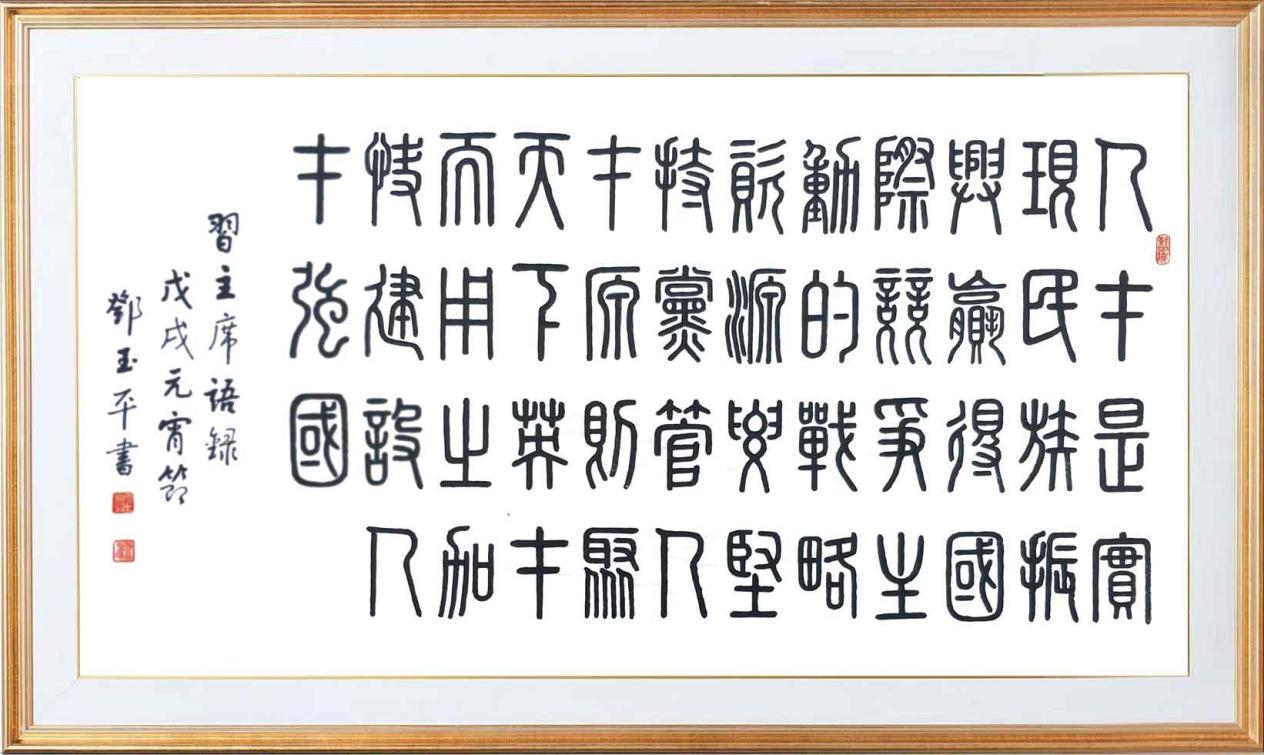 人才是實
現民族振
興贏得國
際競爭主
動的戰略
資源要堅
持黨管人
才原則聚
天下英才
而用之加
快建設人
才強國
習主席語録
戊戌元宵節
鄧玉平書